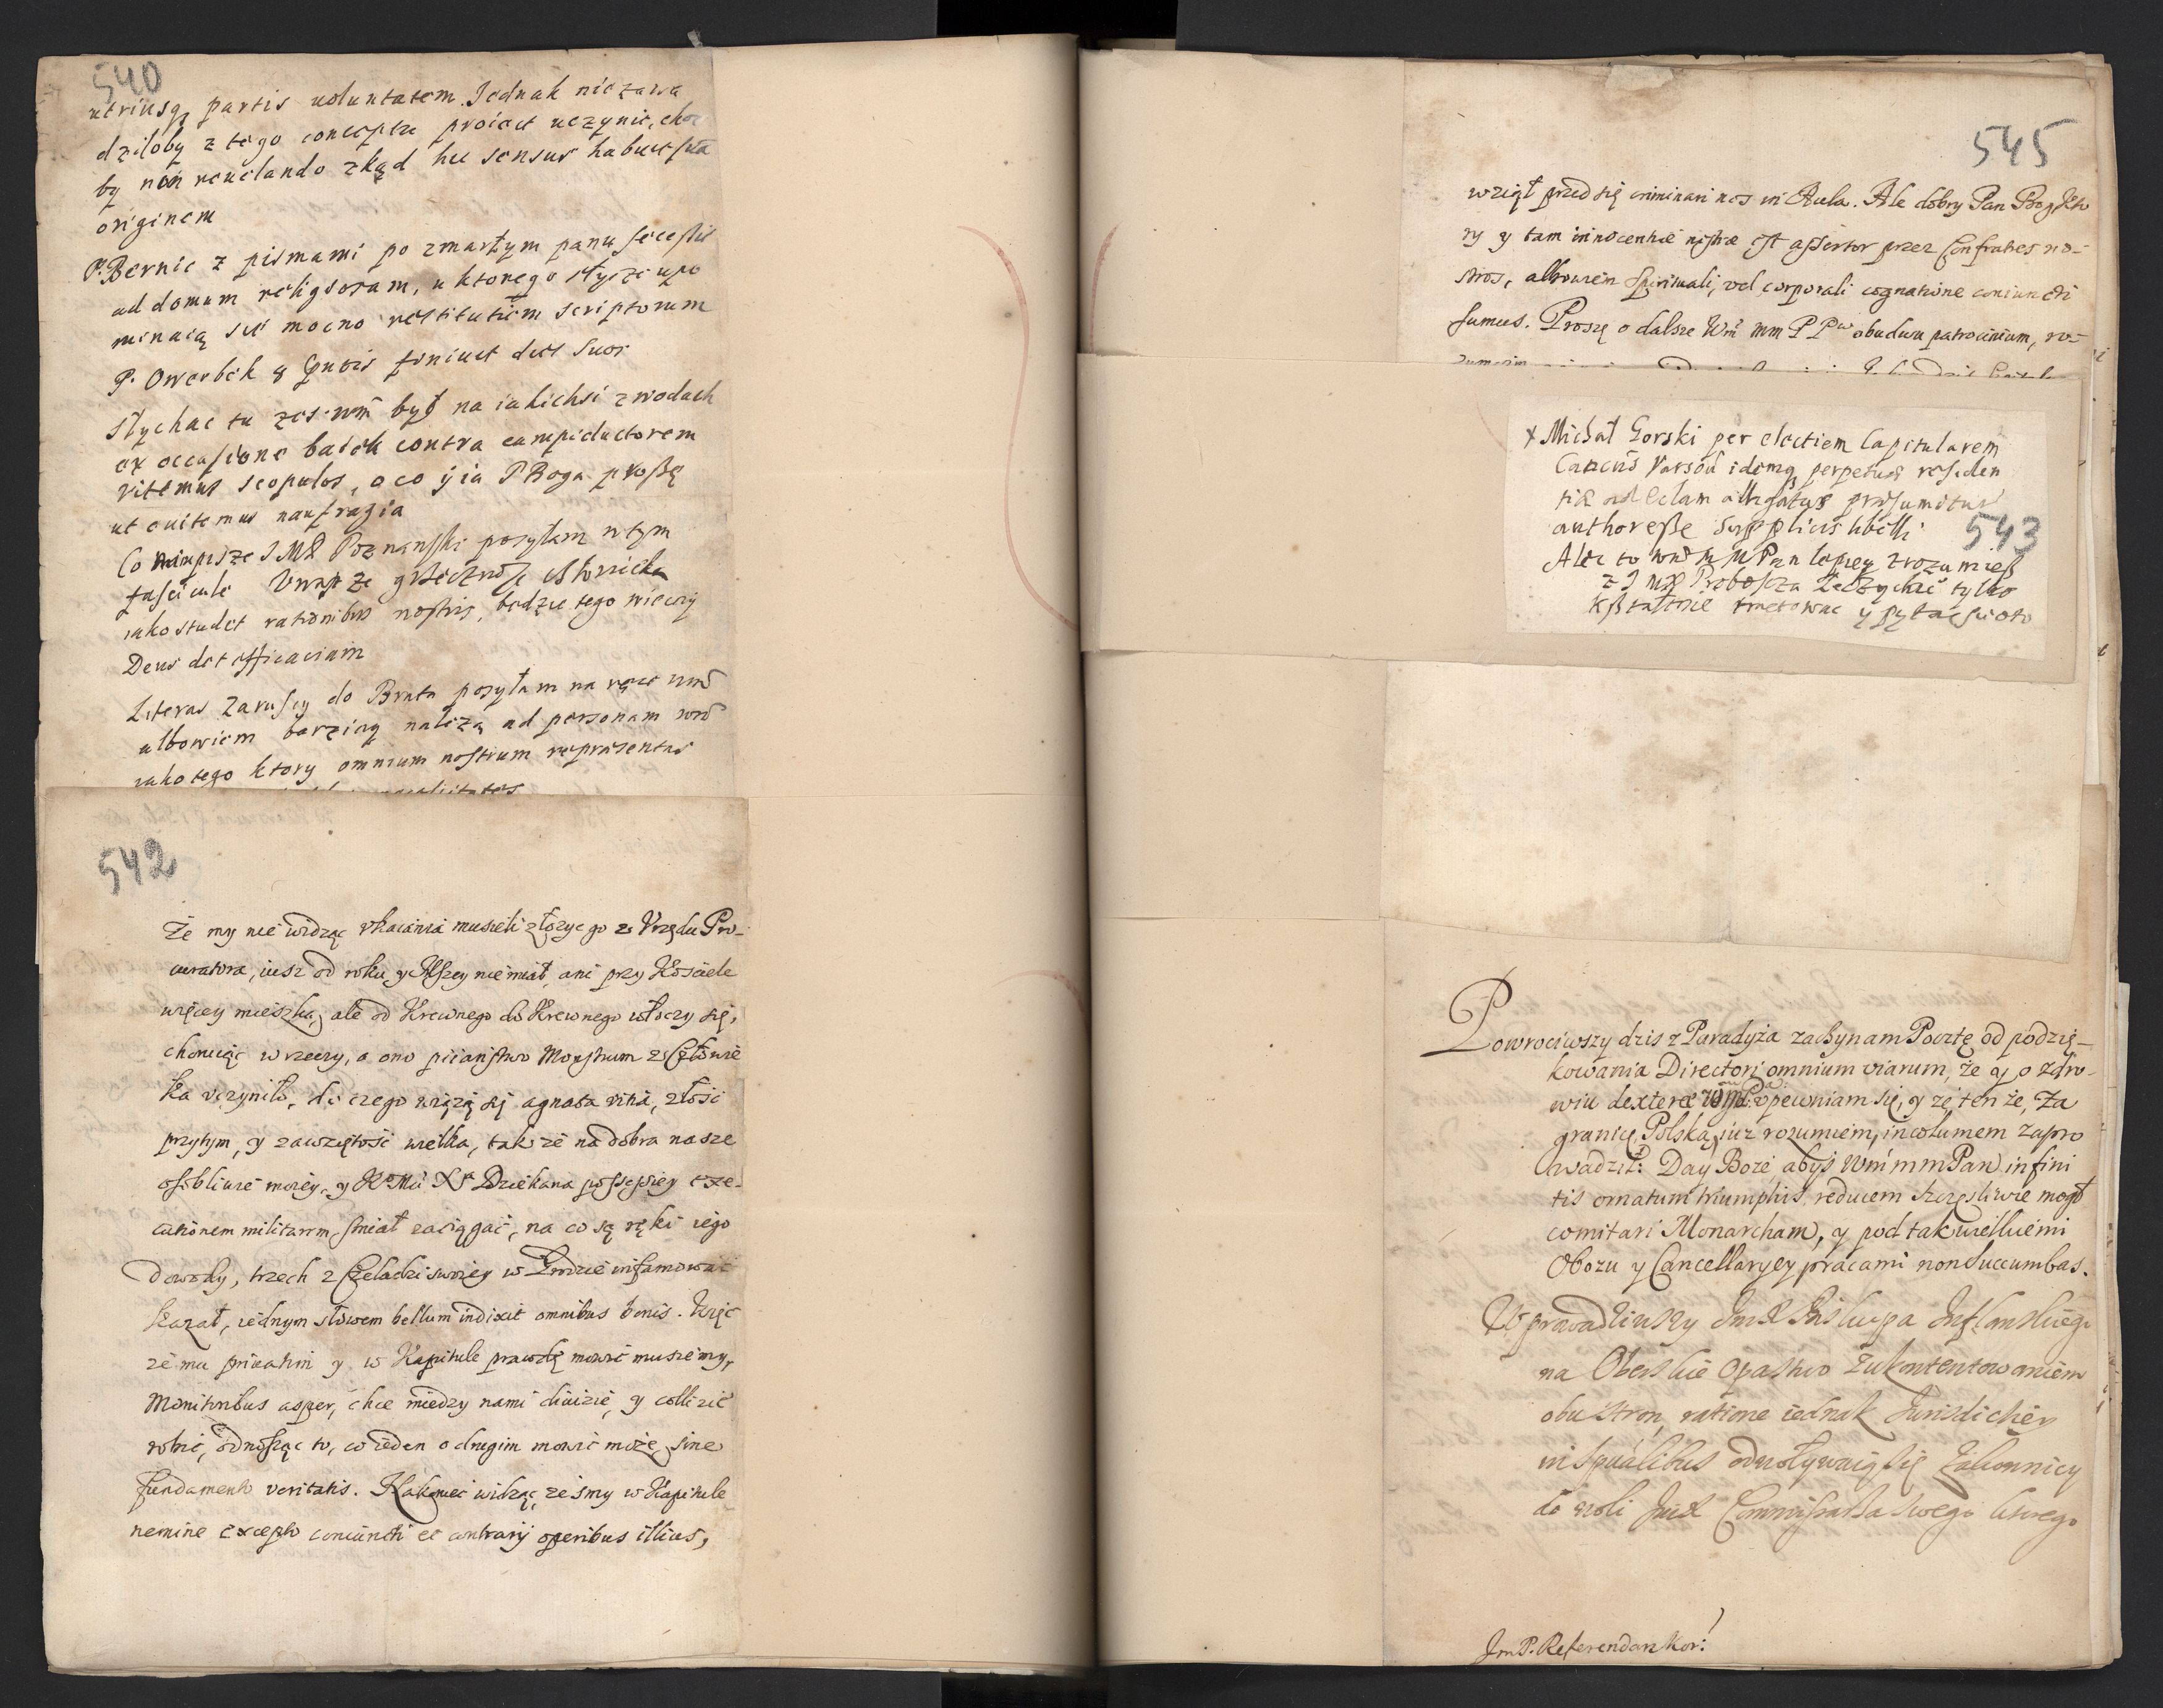 540
utriusq₃ partis voluntatem. Jednak niezawa
dziłoby z tego conceptu proiect uczynic, cho
by non reuelando zkąd hic sensus habuissta
originem
P. Bernic z pismami po zmarłym panu secessit
ad domum religiosam, u ktorego słysze upo
minaią sie mocno restitutiem scriptorum
P. Owerbek 8 finiuet dies suos
Słychac tu zes wm̃ był na iakichsi zwodach
ex occasione batek contra campiductorem
vitemus scopulos, o co y ia P Boga proszę
ut euitemus naufragia
Co mi pisze JMX Poznanski posyłam w tym
fasciculi
iako studet rationibus nostris, bedzie tego wiecey
Deus det efficaciam
Literas Zaruscy do Brata posyłam na ręce wm̃
albowiem barziey należą ad personam wm̃
iako tego ktory omnium nostrum repræsentas
542
Że my nie widząc vkaiania musieli złożyc go z Vrzędu Pro-
curatora, iusz od roku y Mszey nie miał, ani przy Kosciele
więcey mieszka, ale od Krewnego do Krewnego włoczy się,
choruiąc w rzeczy, a ono piianstwo Monstrum z Człowie
ka vczyniło, do czego wiążą się agnata vitia, złość
przytym, y zawziętość wielka, tak że na dobra nasze
osobliwie moiey, y Xa Dziekana possessiey exe-
cutionem militarem smiał zaciągać, na co są ręki iego
dowody, trzech z Czeladzi swoiey w Grodzie infamować
kazał, iednym słowem bellum indixit omnibus bonis. Więc
że mu priuatim y w Kapitule prawdę mowić musiemy,
Monitoribus asper, chce miedzy nami diuizie, y collizie
robić, odnosząc to, co ieden o drugim mowić może, sine
fundamento veritatis. Nakoniec widząc, żesmy w Kapitule
nemine excepto coniuncti et contrarij operibus illius,
545
wziął przed się criminari nos in Aula. Ale dobry Pan Bog, kto
ry y tam innocentiæ nostræ est assertor przez Confratres no-
stros, alboważem spirituali, vel corporali cognatione coniuncti
sumus. Proszę o dalsze Wm̃ mm PPw obudwu patrocinium, ro-
x Michał Gorski per electiem Capitularem
Cancus Varsou idemq₃ perpetuæ residen
tiæ ad Eclam alligatus præsumitur
authoresse supplicis libelli
543
Alec to wm̃ m M Pan lepiey zrozumiesz
z J mx Proboszcza Łeczyckie tylko
kształtnie tractowac y pytac sie oto
Powrociwszy dzis z Paradyża zaczynam Pocztę od podzię-
kowania Directori omnium viarum, że y o zdro-
wiu dexteræ vpewniam się, y że ten że, za
granicę Polską iuż rozumiem, incolumem zapro
wadził: Day Boże abyś Wm̃ mm Pan infini
tis ornatum triumphis, reducem szczęsliwie mogł
comitari Monarcham, y pod tak wielkiemi
Obozu y Cancellaryey pracami non succumbas.
Wprowadziwszy Jmx Biskupa Inflantskiego
na Oberskie Opastwo z ukontentowaniem
obu stron, ratione iednak Iurisdictiey
in spũalibus odwoływaią się Zakonnicy
do woli Jmx Commissarza swego ktorego
Jm P. Referendarz Kor: